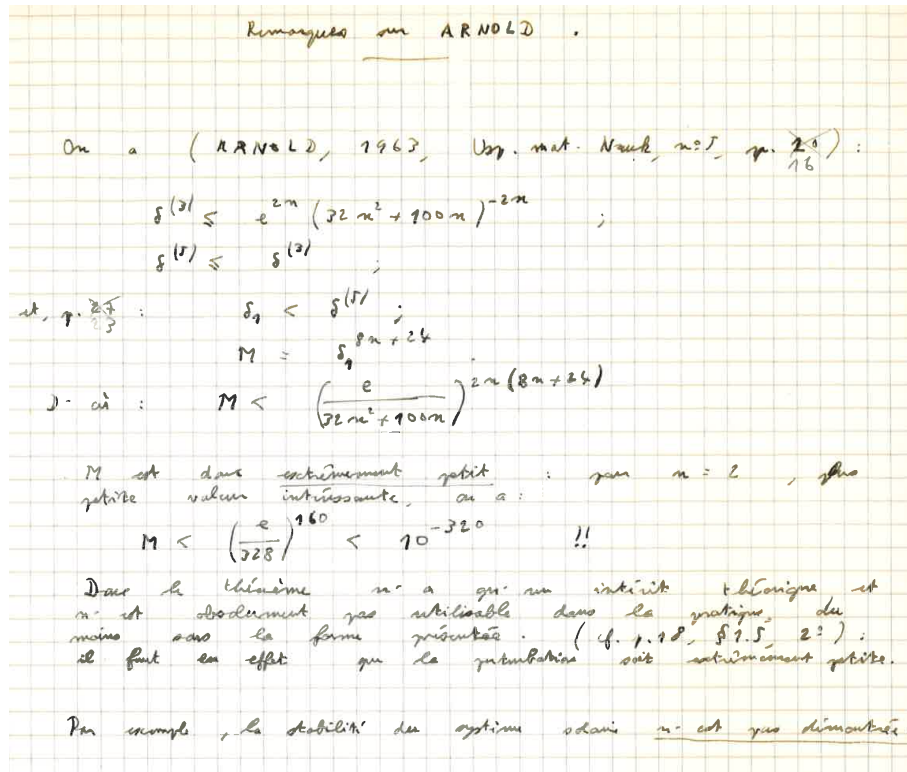 Remarques sur ARNOLD .
On a ( ARNOLD, 1963, Usp. mat. Nauk, n°5, p. 16) :
δ^(3) ≤ e^2n (32 n² + 100n)^-2n ;
δ^(5) ≤ δ^(3) ;
et, p. 23 : δ₁ < δ^(5) ;
M = δ₁^8n+24 .
D'où : M < (e / 32n² + 100n)^2n(8n+24)
M est donc extrêmement petit : pour n = 2 , plus
petite valeur intéressante, on a :
M < (e / 328)^160 < 10^-320 !!
Donc le théorème n'a qu'un intérêt théorique et
n'est absolument pas utilisable dans la pratique, du
moins sous la forme présentée . ( cf. p.18, §1.5, 2° ) :
il faut en effet que la perturbation soit extrêmement petite.
Par exemple , la stabilité du système solaire n'est pas démontrée